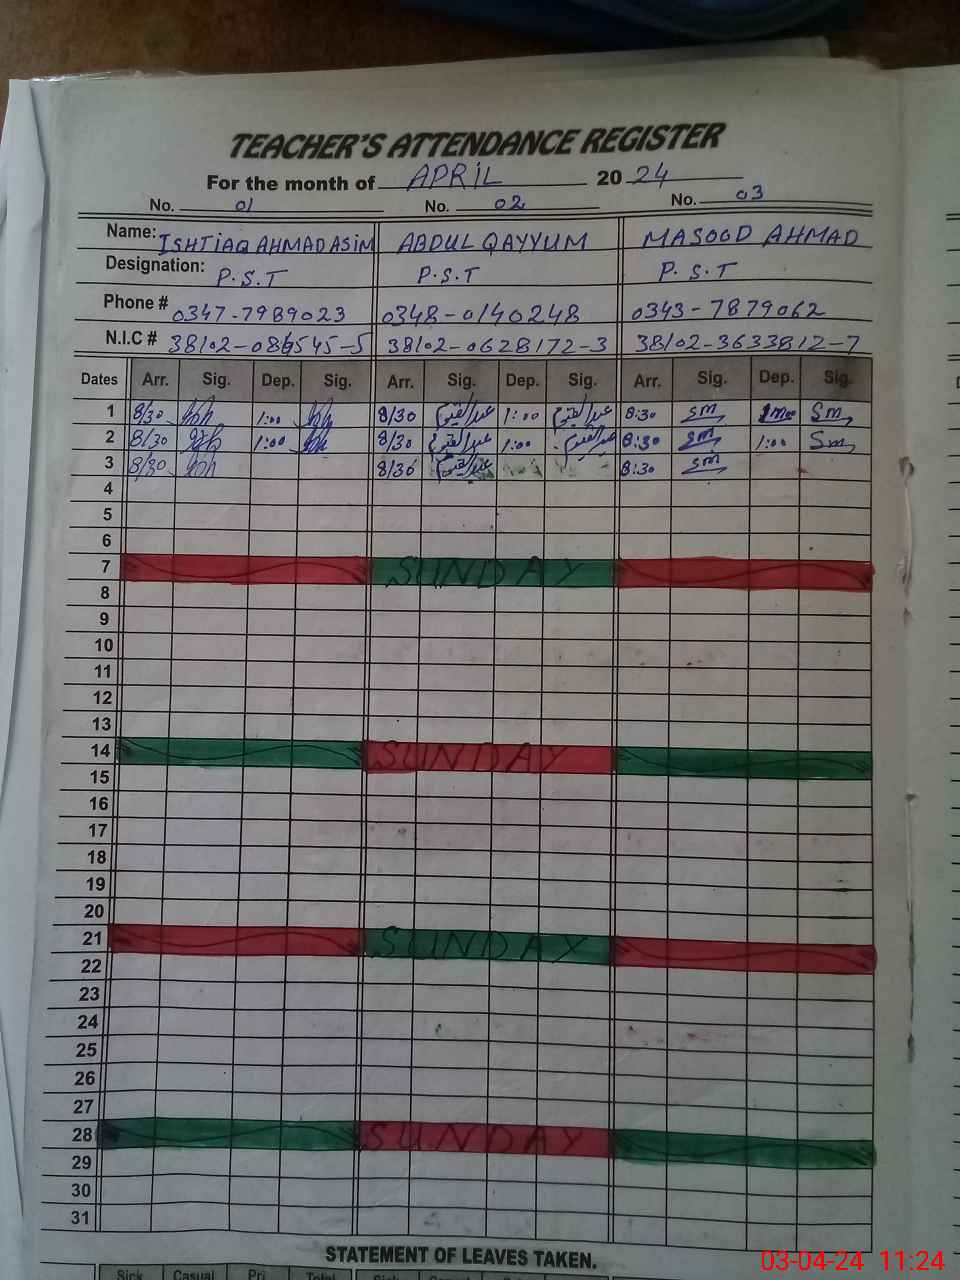 TEACHER'S ATTENDANCE REGISTER
For the month of APRIL 20 24
No. 01 No. 02 No. 03
Name: ISHTIAQ AHMAD ASIM ABDUL QAYYUM MASOOD AHMAD
Designation: P.S.T P.S.T P.S.T
Phone # 0347-7989023 0348-0140248 0343-7879062
N.I.C # 38102-0628172-3 38102-3633812-7
Dates Arr. Sig. Dep. Sig. Arr. Sig. Dep. Sig. Arr. Sig. Dep. Sig.
1 8/30 1:00 8/30 عبدالقیوم 1:00 عبدالقیوم 8:30 Sm Sm
2 8/30 1:00 8/30 عبدالقیوم 1:00 عبدالقیوم 8:30 Sm 1:00 Sm
3 8/30 8/30 عبدالقیوم 8:30 Sm
4
5
6
7 SUNDAY
8
9
10
11
12
13
14 SUNDAY
15
16
17
18
19
20
21 SUNDAY
22
23
24
25
26
27
28 SUNDAY
29
30
31
STATEMENT OF LEAVES TAKEN.
Sick Casual Pri. Total
03-04-24 11:24